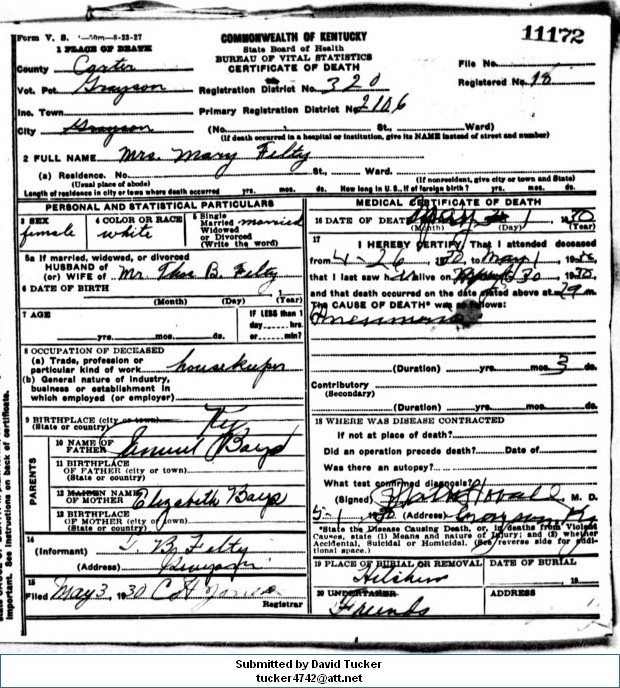 Form V. S. 8-23-27
COMMONWEALTH OF KENTUCKY
State Board of Health
BUREAU OF VITAL STATISTICS
CERTIFICATE OF DEATH
11172
1 PLACE OF DEATH
County Carter
File No.
Vot. Pct. Grayson
Registration District No. 320
Registered No. 18
Inc. Town
Primary Registration District No. 2106
City Grayson (No. St., Ward)
(If death occurred in a hospital or institution, give its NAME instead of street and number)
2 FULL NAME Mrs. Mary Felty
(a) Residence. No. St., Ward.
(Usual place of abode) (If nonresident, give city or town and State)
Length of residence in city or town where death occurred yrs. mos. ds. How long in U. S., if of foreign birth? yrs. mos. ds.
PERSONAL AND STATISTICAL PARTICULARS
3 SEX
female
4 COLOR OR RACE
white
5 Single
Married
Widowed
or Divorced
(Write the word)
married
5a If married, widowed, or divorced
HUSBAND of
(or) WIFE of Mr. Thos B. Felty
6 DATE OF BIRTH
(Month) (Day) (Year)
7 AGE
yrs. mos. ds.
IF LESS than 1
day hrs.
or min?
8 OCCUPATION OF DECEASED
(a) Trade, profession or
particular kind of work housekeeper
(b) General nature of industry,
business or establishment in
which employed (or employer)
9 BIRTHPLACE (city or town)
(State or country) Ky
PARENTS
10 NAME OF
FATHER
11 BIRTHPLACE
OF FATHER (city or town)
(State or country)
12 MAIDEN NAME
OF MOTHER Elizabeth Bays
13 BIRTHPLACE
OF MOTHER (city or town)
(State or country)
14
(Informant) T. B. Felty
(Address) Grayson
15
Filed May 3, 1930 C H
Registrar
MEDICAL CERTIFICATE OF DEATH
16 DATE OF DEATH 1 1930
(Month) (Day) (Year)
17
I HEREBY CERTIFY, That I attended deceased
from 4-26 1930, to May 1, 1930
that I last saw h alive on Apr 30 1930
and that death occurred on the date stated above at m.
The CAUSE OF DEATH* was as follows:
Pneumonia
(Duration) yrs. mos. 3 ds.
Contributory
(Secondary)
(Duration) yrs. mos. ds.
18 WHERE WAS DISEASE CONTRACTED
If not at place of death?
Did an operation precede death? Date of
Was there an autopsy?
What test confirmed diagnosis?
(Signed) M. D.
5-1, 1930 (Address) Grayson Ky
*State the Disease Causing Death, or, in deaths from Violent
Causes, state (1) Means and nature of Injury; and (2) whether
Accidental, Suicidal or Homicidal. (See reverse side for addi-
tional space.)
19 PLACE OF BURIAL OR REMOVAL
DATE OF BURIAL
19
20 UNDERTAKER
Friends
ADDRESS
important. See instructions on back of certificate.
Submitted by David Tucker
tucker4742@att.net